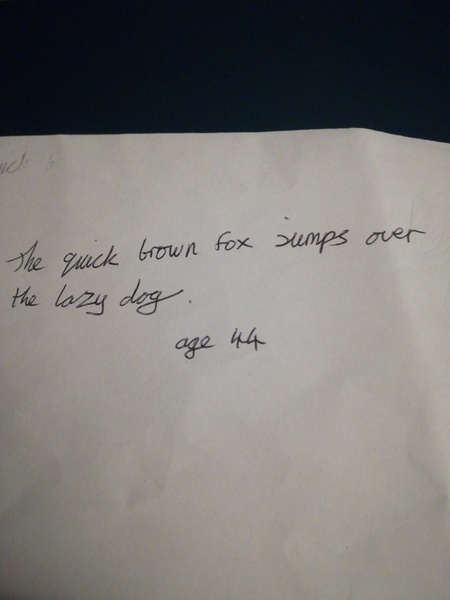 The quick brown fox jumps over
the lazy dog.
age 44